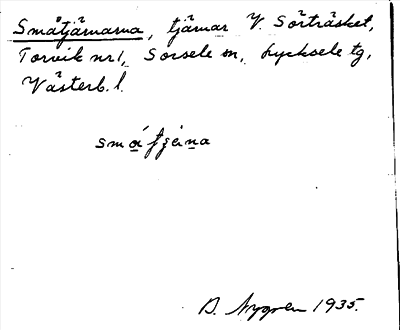 Småtjärnarna, tjärnar V. Sörträsket,
Torvik nr 1, Sorsele sn, Lycksele tg,
Västerb. l.
D. Nygren 1935.